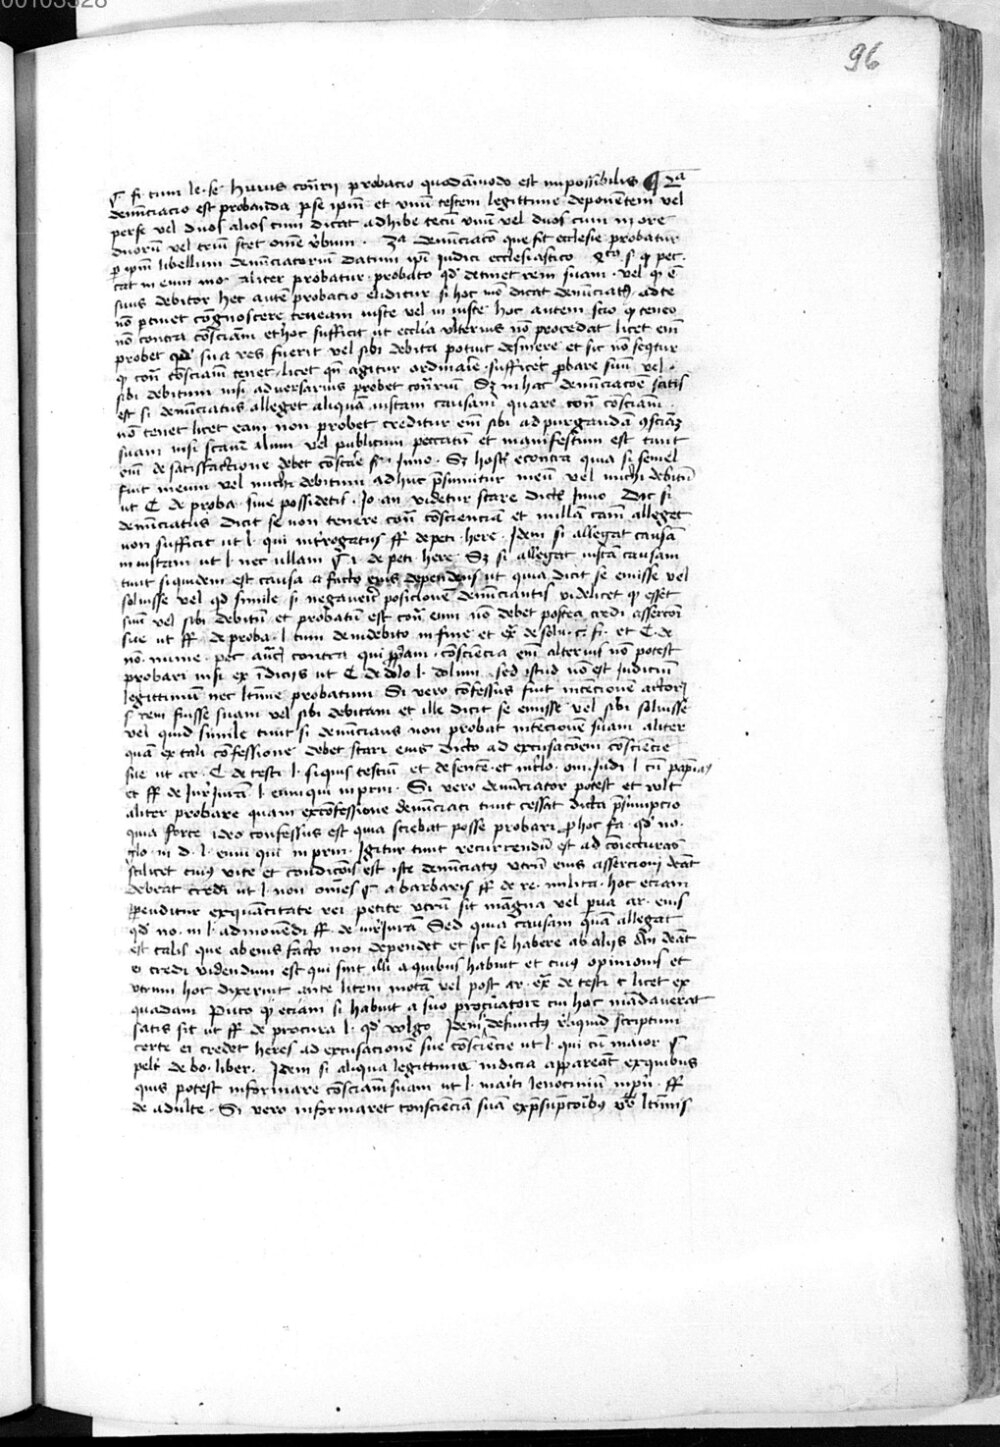 00103328
96
§ fi. cum le. se. huius cōtrarij probacio quodāmodo est impossibilis ¶ 2ᵃ
denūciacio est probanda p se ipm̄ et vnū testem legittime deponētem vel
per se vel duos alios cum dicat adhibe tecū vnū vel duos cum in ore
duorū vel triū stet om̄e v̄bum . 3ᵃ denūciacō que fit ecclesie probatur
p ipm̄ libellum denūciatorium datum ip̄i Judici ecclesiastico
cat in eum aliter probatur . probato qd̓ detinet rem suam . vel qꝫ ē
suus debitor hec autē probacio eliditur si hoc mō dicat denūciatꝰ ad te
nō ptinet cognoscere teneam iuste vel in iuste hoc autem scio qꝫ teneo
nō contra cōsciam̄ et hoc sufficit ut eccl̄ia vlterius nō procedat licet em̄
probet qd̓ sua res fuerit vel sibi debita potuit desinere et sic nō seqtur
qꝫ con̄ cōsciam̄ tenet . licet qn̄ agitur ordinarie . sufficeret pbare suū vel .
sibi debitum nisi adversarius probet cōtrariū Sꝫ in hac denūciacōe satis
est si denūciatus alleget aliquā iustam causam quare con̄ cōsciam̄
nō tenet licet eam non probet creditur em̄ sibi ad purgandā ꝯsciā
suam nisi scand̓alum vel publicum peccatū et manifestum est tunc
em̄ de satisfactione debet cōstare Inno . Sꝫ hosti econtra quia si semel
fuit meum vel michi debitum adhuc p̄sumitur meū vel michi debitū
ut C de proba . siue possidetis . Jo. an. videtur stare dictꝭ Inno Dic si
denūciatus dicit se non tenere con̄ cōscienciā et nullā cam̄ alleget
non sufficit ut l. qui introgatus ff de peti here . Idem si allegat causā
iniustam ut l. nec ullam § 1 de peti here Sꝫ si allegat iustā causam
tunc siquidem est causa a facto eius dependens ut quia dicit se emisse vel
soluisse vel qd simile si negauerit posicionē denūciantis videlicet qꝫ esset
suū vel sibi debitū et probatū est con̄ eum nō debet postea credi assercōi
sue ut ff de proba . l. cum de indebito in fine et ex̄ de solu . c. fi . et C. de
nō nume . pec auct̓ contra qui p̄priam . cōsciencia em̄ alterius nō potest
probari nisi ex īdicijs ut C de dolo l. dolum sed istud nō est Judiciū
legittimū nec l̄time probatum Si vero cōfessus fuit intencionē actoris
s rem fuisse suam vel sibi debitam et ille dicit se emisse vel sibi soluisse
vel quid simile tunc si denūcians non probat intencionē suam aliter
quā ex tali cōfessione debet stari eius dicto ad excusacōem cōsciencie
sue ut ar . C de testi l. si quis testiū et de senten . et intlo . om̄ . iudi l cū papiāꝰ
et ff de Jureiurā l. eum qui in prin . Si vero denūciator potest et vult
aliter probare quam ex cōfessione denūciati tunc cessat dicta p̄sumpcio
quia forte ideo confessus est quia sciebat posse probari p hoc fa . qd̓ no .
glo in d. l. eum qui in prin . Igitur tunc recurrendū est ad cōiecturas
scilicet cuiꝰ vite et condicōis est iste denūciatꝰ vtrū eius assercioni debeat
debeat credi ut l. non om̄es § a barbaris ff de re . milita . hoc eciam
penditur ex quātitate rei petite vtrū sit magna vel parua ar . eius
qd̓ no . in l. admonēdi ff . de iureiurā Sed quia causam quam allegat
est talis que ab eius facto non dependet et sic se habere ab alijs An debeat
ei credi videndum est qui sint illi a quibus habuit et cuiꝰ opinionis et
vtrum hoc dixerint ante litem motā vel post ar . ex̄ de testi c licet ex
quadam Puto qꝫ eciam si habuit a suo procuratore cui hoc mādaverat
satis sit ut ff de procura l. qd̓ volgo Idem defunctꝰ reliquid scriptum
certe ei credet heres ad excusacionē sue cōsciencie ut l. qui cū maior §
pelꝭ de bo . liber . Idem si aliqua legittima indicia appareāt ex quibus
quis potest informare cōsciam suam ut l. mariti lenocinium in prin . ff
de adulte . Si vero informaret conscienciā suā ex p̄sumpcōibꝰ l̄timis